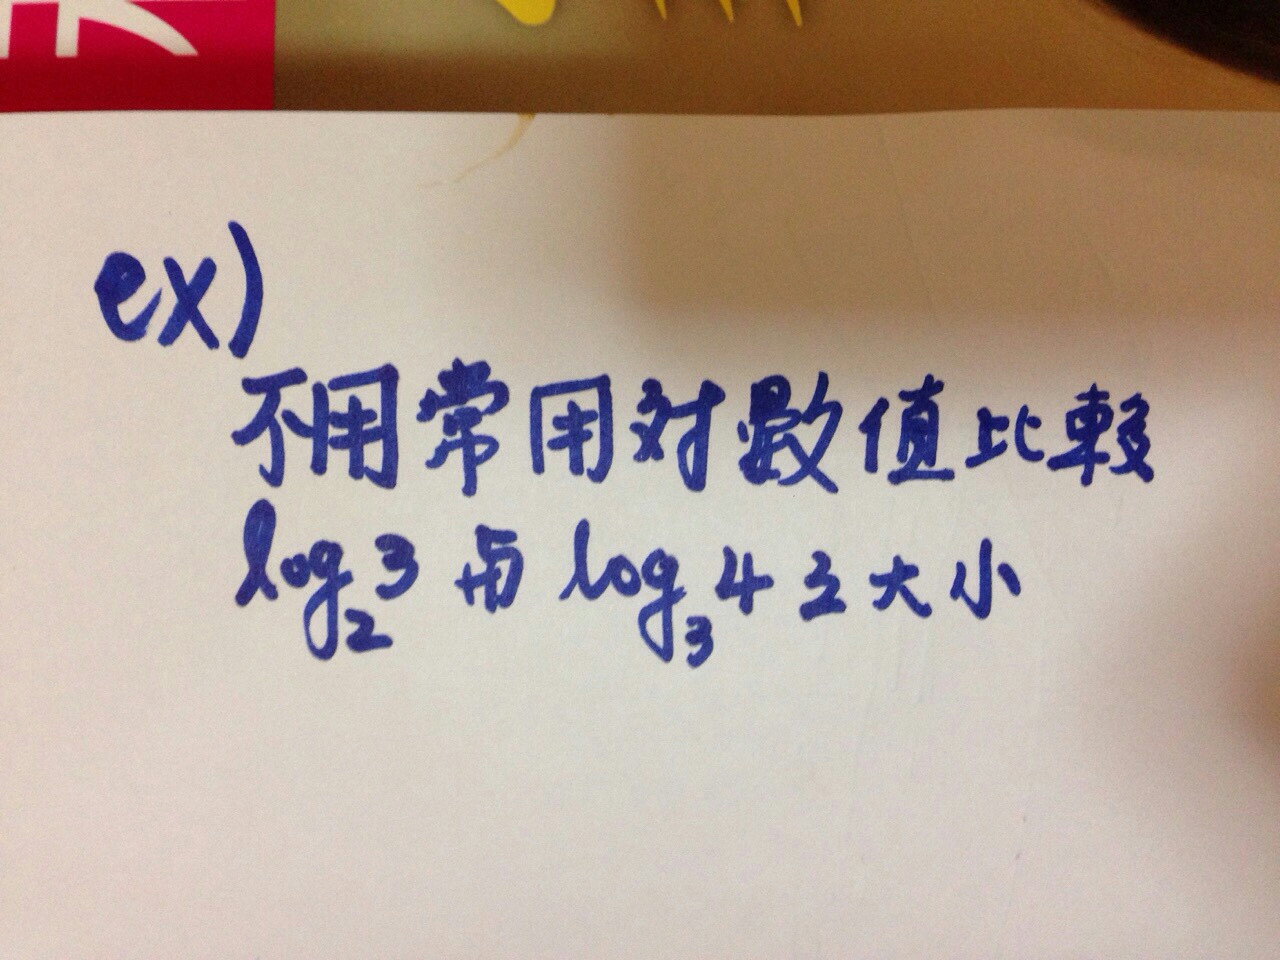 ex)
不用常用対數值比較
log₂3 与 log₃4 之大小